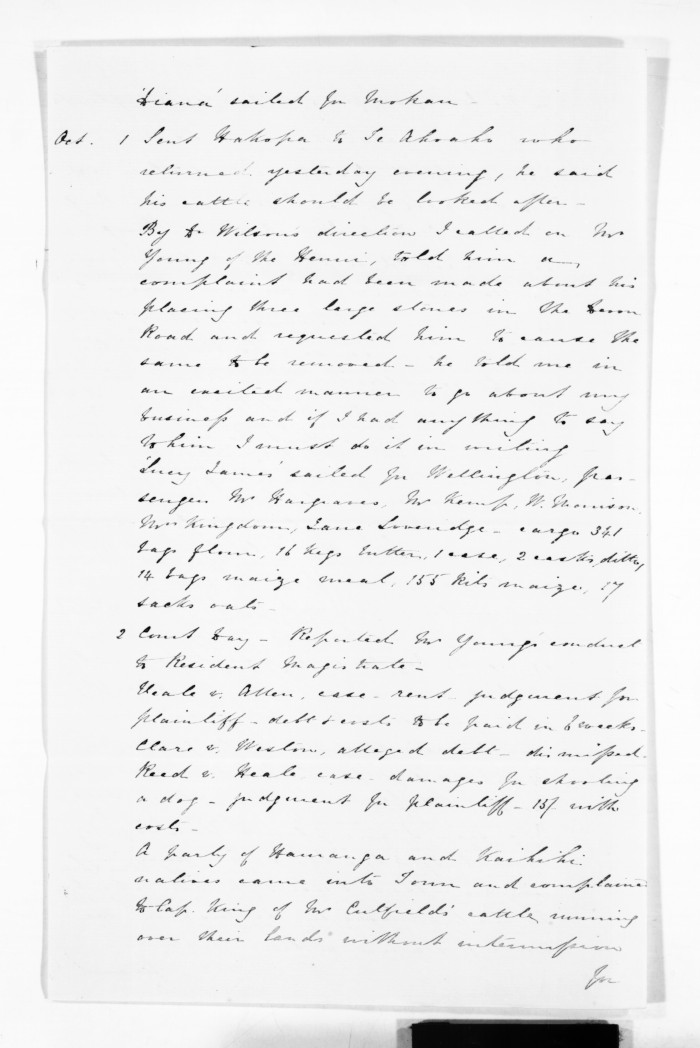 'Diana' sailed for Mokau -
Oct. 1 Sent Hakopa to Te Ahoaho who
returned yesterday evening, he said
his cattle should be looked after -
By Dr Wilson's direction I called on Mr
Young of the Henui, told him a
complaint had been made about his
placing three large stones in the Devon
Road and requested him to cause the
same to be removed - he told me in
an excited manner to go about my
business and if I had anything to say
to him I must do it in writing
'Lucy James' sailed for Wellington, pas-
sengers Mr Hargraves, Mr Kemp, W. Morrison,
Mrs Kingdom, Jane Loveridge - cargo 341
bags flour, 16 kegs butter, 1 case, 2 casks ditto,
14 bags maize meal, 155 kits maize, 17
sacks oats -
2 Court Day - Reported Mr Young's conduct
to Resident Magistrate -
Heale v. Allen, case - rent - judgment for
plaintiff - debt & costs to be paid in 6 weeks -
Clare v. Weston, alleged debt - dismissed -
Reed v. Heale case - damages for shooting
a dog - judgment for plaintiff - 15/ with
costs -
A party of Hauranga and Kaihihi
natives came into Town and complained
to Cap. King of Mr Cutfield's cattle running
over their lands without intermission
for